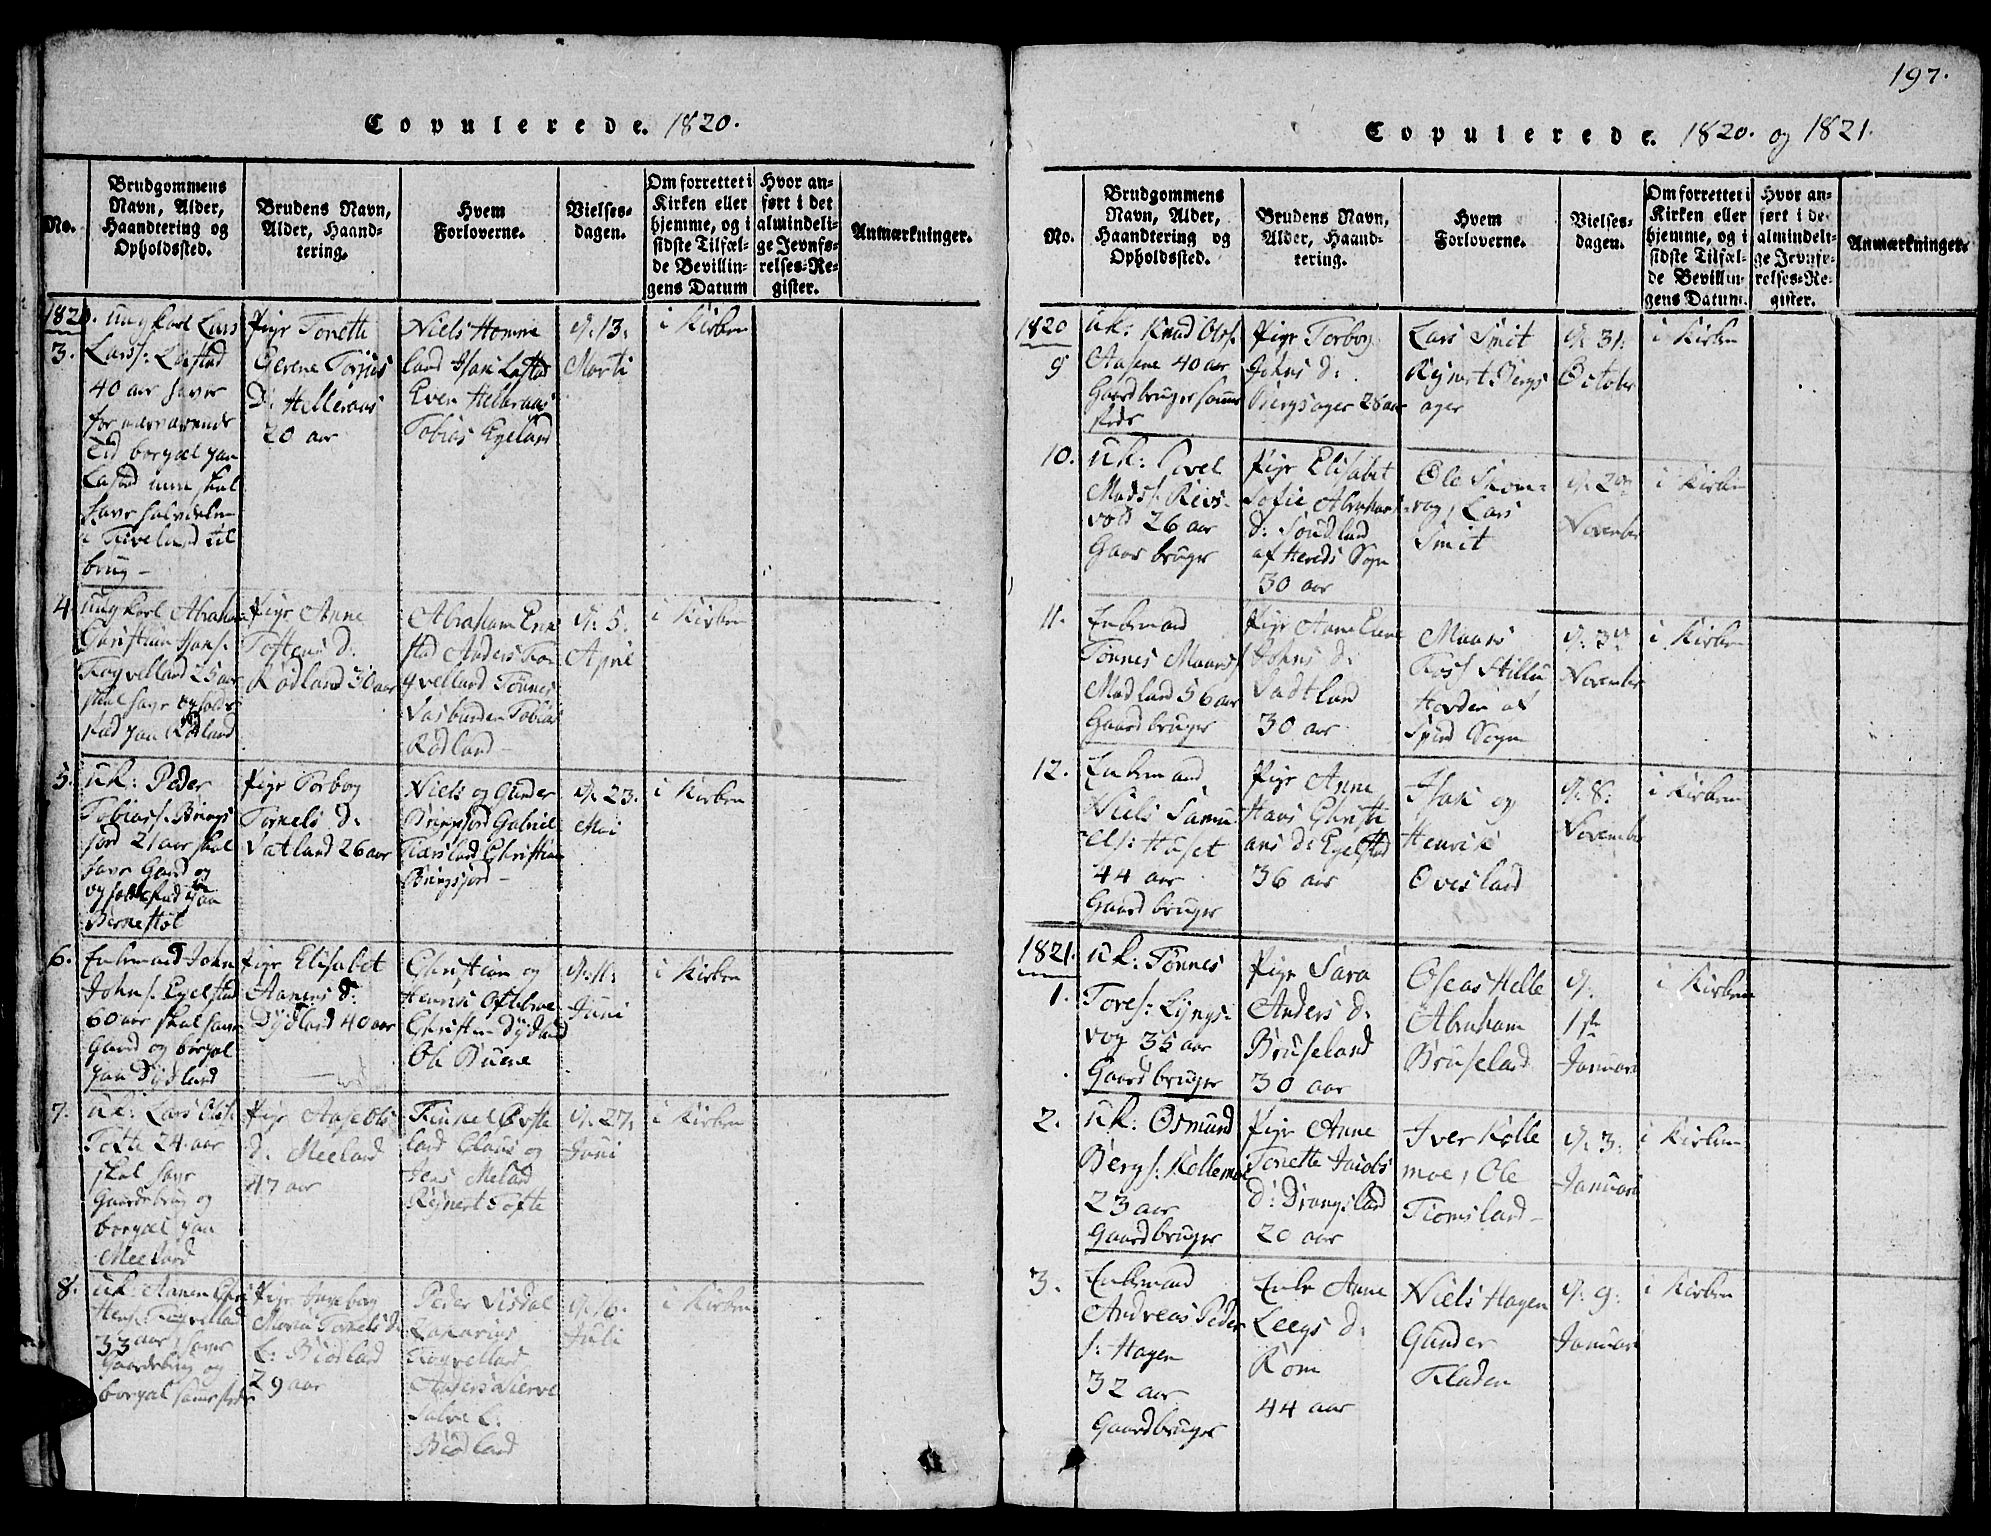 Copulerede. 1820.
No.
Brudgommens
Navn, Alder,
Haandtering og
Opholdssted.
Brudens Navn,
Alder, Haand-
tering.
Hvem
Forloverne.
Vielses-
dagen.
Om forrettet i
Kirken eller
hjemme, og i
sidste Tilfæl-
de Bevillin-
gens Datum
Hvor an-
ført i det
almindeli-
ge Jevnfø-
relses-Re-
gister.
Anmærkninger.
1820.
3.
ungkarl Lars
Larss: Lastad
40 aar haver
for nærværende
Tid borgæl paa
Lastad men skal
have halvdelen
i Fiveland til
brug -
Pige Tonette
Serene Torjus
D: Helleraas
20 aar
Niels Homme
land Isac Lastad
Even Helleraas
Tobias Egeland
d. 13:
Marti
i Kirken
4.
ungkarl Abraham
Christian Isacs:
Fogvelland 25 aar
skal have opholds
stad paa Rødland
Pige Anne
Tostens D:
Rødland 30 aar
Abraham
stad Anders Fon
gvelland Tønnes
Tobias
Rødland -
d. 5.
April
i Kirken
5.
uk: Peder
Tobias s. Brings
jord 21 aar skal
have Gaard og
opholdstad paa
Bernestøl
Pige Torbog
Tornels D:
Vatland 26 aar
Niels og Gunder
Bringsjord Gabriel
Christian
Bringsjord -
d. 23.
Mai
i Kirken
6.
Enkemand John
John s. Egelstad
60 aar skal have
Gaard og borgæl
paa Dydland
Pige Elisabet
Aanens D:
Dydland 40 aar
Christian og
Henrik
Christen Dydland
Ole Buene
d. 11:
Juni
i Kirken
7.
uk: Lars Ols s:
Tofte 24 aar
skal have
Gaardebrug og
borgæl paa
Meeland
Pige Aase Ols
D: Meeland
47 aar
Tinkel Øvste
land Claus og
Jens Meland
Rejnert Tofte
d. 27.
Juni
i Kirken
8.
uk: Aanen Chri
stens: Fogvelland
33 aar haver
Gaardebrug og
borgæl sammestæds
Pige Ingeborg
Maria Tornels D:
L: Biødland
29 aar
Peder Visdal
Zakarias
Fogvelland
Anders Nierve
Salve L:
Biødland
d. 16.
Juli
i Kirken
197.
Copulerede. 1820. og 1821.
No.
Brudgommens
Navn, Alder,
Haandtering og
Opholdssted.
Brudens Navn,
Alder, Haand-
tering.
Hvem
Forloverne.
Vielses-
dagen.
Om forrettet i
Kirken eller
hjemme, og i
sidste Tilfæl-
de Bevillin-
gens Datum.
Hvor an-
ført i det
almindeli-
ge Jevnfø-
relses-Re-
gister.
Anmærkninger.
1820
9
uk: Knud Ols s.
Aasene 40 aar
Gaardbruger samme
steds
Pige Torbog
Johns D:
Bergsager 28 aar
Lars Smit
Rejnert Bergs
ager
d. 31:
October
i Kirken
10.
uk: Povel
Mads s. Reis-
vold 26 aar
Gaar bruger
Pige Elisabet
Sofie Abrahams
D: Sundland
af Hereds Sogn
30 aar
Ole Skom-
vog, Lars
Smit
d. 2den
November
i Kirken
11.
Enkemand
Tønnes Maans s
Madland 56 aar
Gaardbruger
Pige Anne
Johns D:
Vadtland
30 aar
Maans
Hovden af
Spind Sogn
d. 3de
November
i Kirken
12.
Enkemand
Niels Samu
els: Huset
44 aar
Gaardbruger
Pige Anne
Hans Christi
ans D: Egelstad
36 aar
Isac og
Henrik
Øvesland
d. 8:
November
i Kirken
1821.
1.
uk: Tønnes
Tores: Lyngs-
vog 35 aar
Gaardbruger
Pige Sara
Anders D:
Bruseland
30 aar
Oseas Helle
Abraham
Bruseland
d.
1ste
Januari
i Kirken
2.
uk: Osmund
Berg s: Kollemoe
23 aar
Gaardbruger
Pige Anne
Tonette Jacobs
D: Drangsland
20 aar
Iver Kolle
moe, Ole
Tiomsland -
d. 3:
Januari
i Kirken
3.
Enkemand
Andreas Peder
s: Hagen
32 aar
Gaardbruger
Enke Anne
Leegs D:
Rom
44 aar
Niels Hagen
Gunder
Fladen
d. 9:
Januari
i Kirken